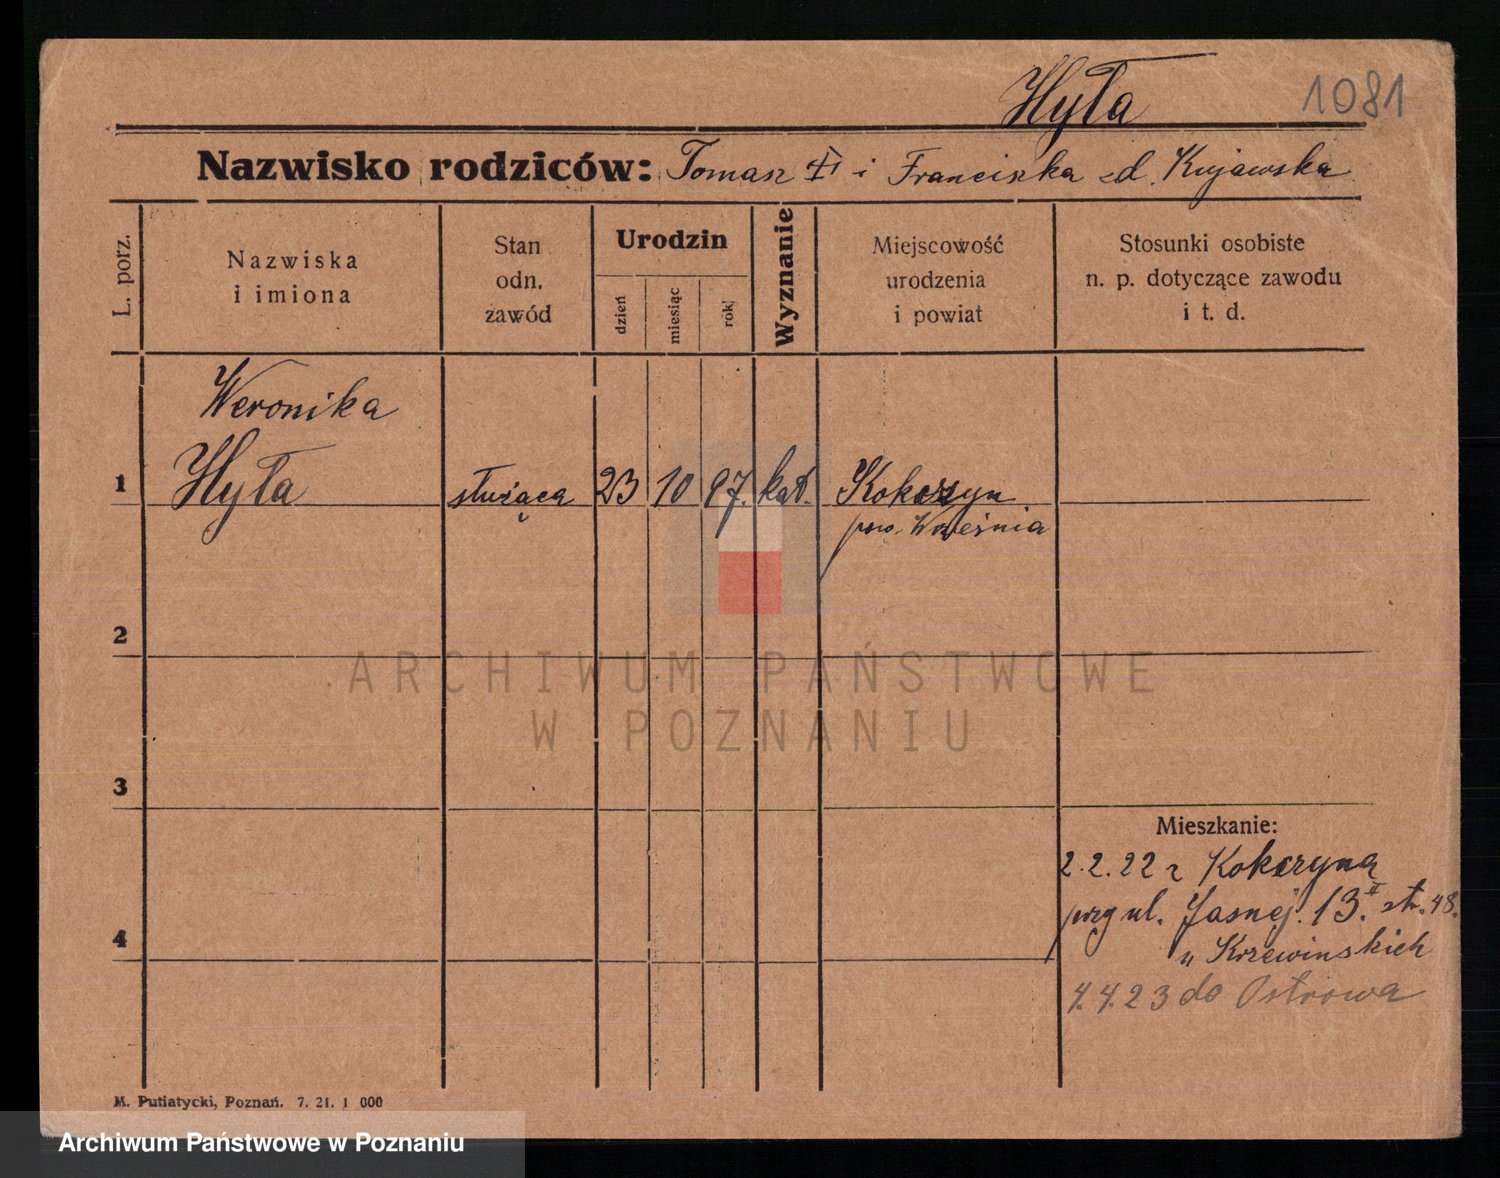 Hyła
1081
Nazwisko rodziców: Tomasz H i Franciszka zd. Kujawska
L. porz.
Nazwiska
i imiona
Stan
odn.
zawód
Urodzin
dzień
miesiąc
rok
Wyznanie
Miejscowość
urodzenia
i powiat
Stosunki osobiste
n. p. dotyczące zawodu
i t. d.
Weronika
1 Hyła służąca 23 10 97. kat. Kokczyn
pow. Września
2
3
4
Mieszkanie:
2.2.22 z Kokczyna
przy ul. Jasnej. 13. II str. 48.
u Krzewinskich
4.4.23 do Ostrowa
M. Putiatycki, Poznań. 7. 21. 1 000
ARCHIWUM PAŃSTWOWE
W POZNANIU
Archiwum Państwowe w Poznaniu